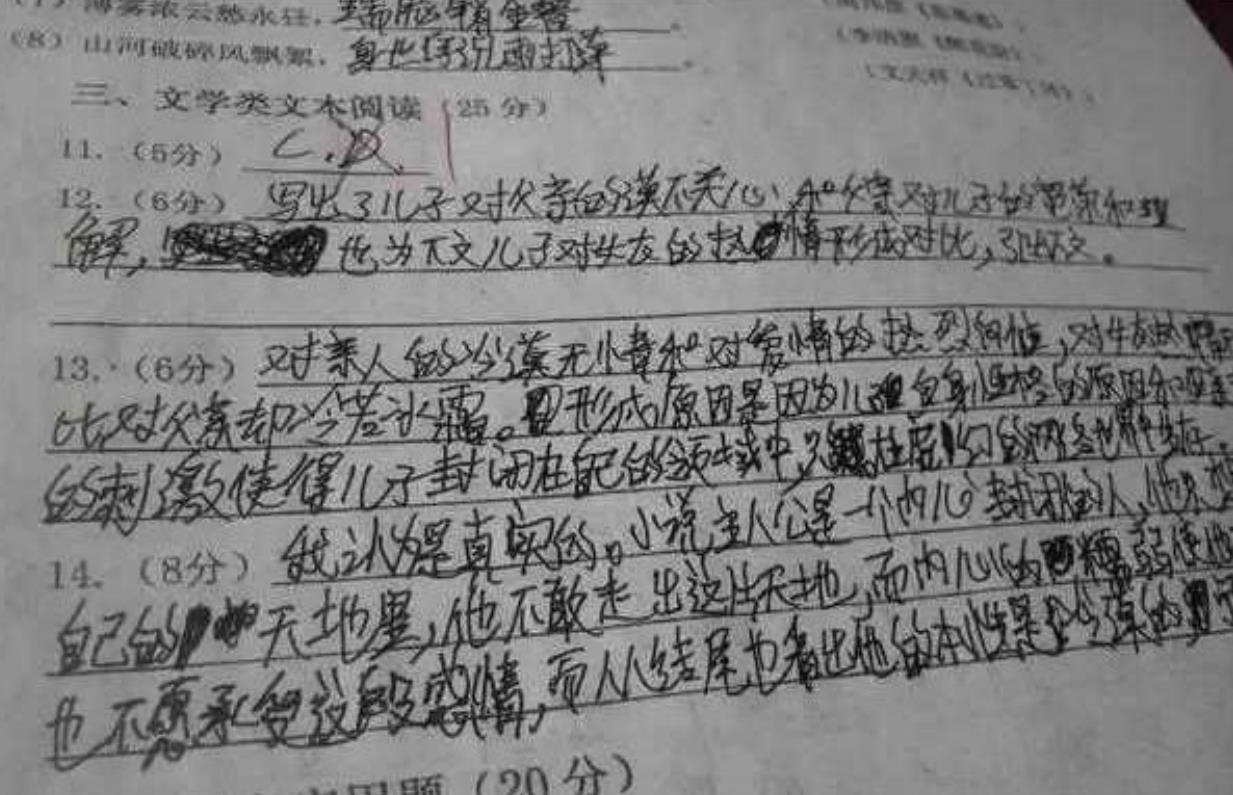 (7) 薄雾浓云愁永昼，瑞脑销金兽。
(8) 山河破碎风飘絮，身世浮沉雨打萍。
三、文学类文本阅读（25分）
11.（5分） C.D.
12.（6分） 写出了儿子对父亲的漠不关心和父亲对儿子的和理
解，也为下文儿子对女友的热情形成对比，引出下文。
13.（6分） 对亲人的冷漠无情和对爱情的热烈，对女友热
比，对父亲却冷若冰霜。形成原因是因为儿自身性格的原因和
的刺激使得儿子封闭在自己的领域中，只的网络世界
14.（8分） 我认为是真实的。小说主人公是一个内心封闭的人，他
自己的天地里，他不敢走出这片天地，而内心的懦弱使他
也不愿承受这段感情，而从结尾也看出他的本性是冷漠的
（20分）